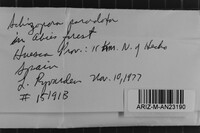 Schizopora paradoxa
in abies forest
Huesca Prov.: 11 km. N. of Hecho
Spain
L. Ryvarden Nov. 10, 1977
# 15191B
ARIZ-M-AN23190